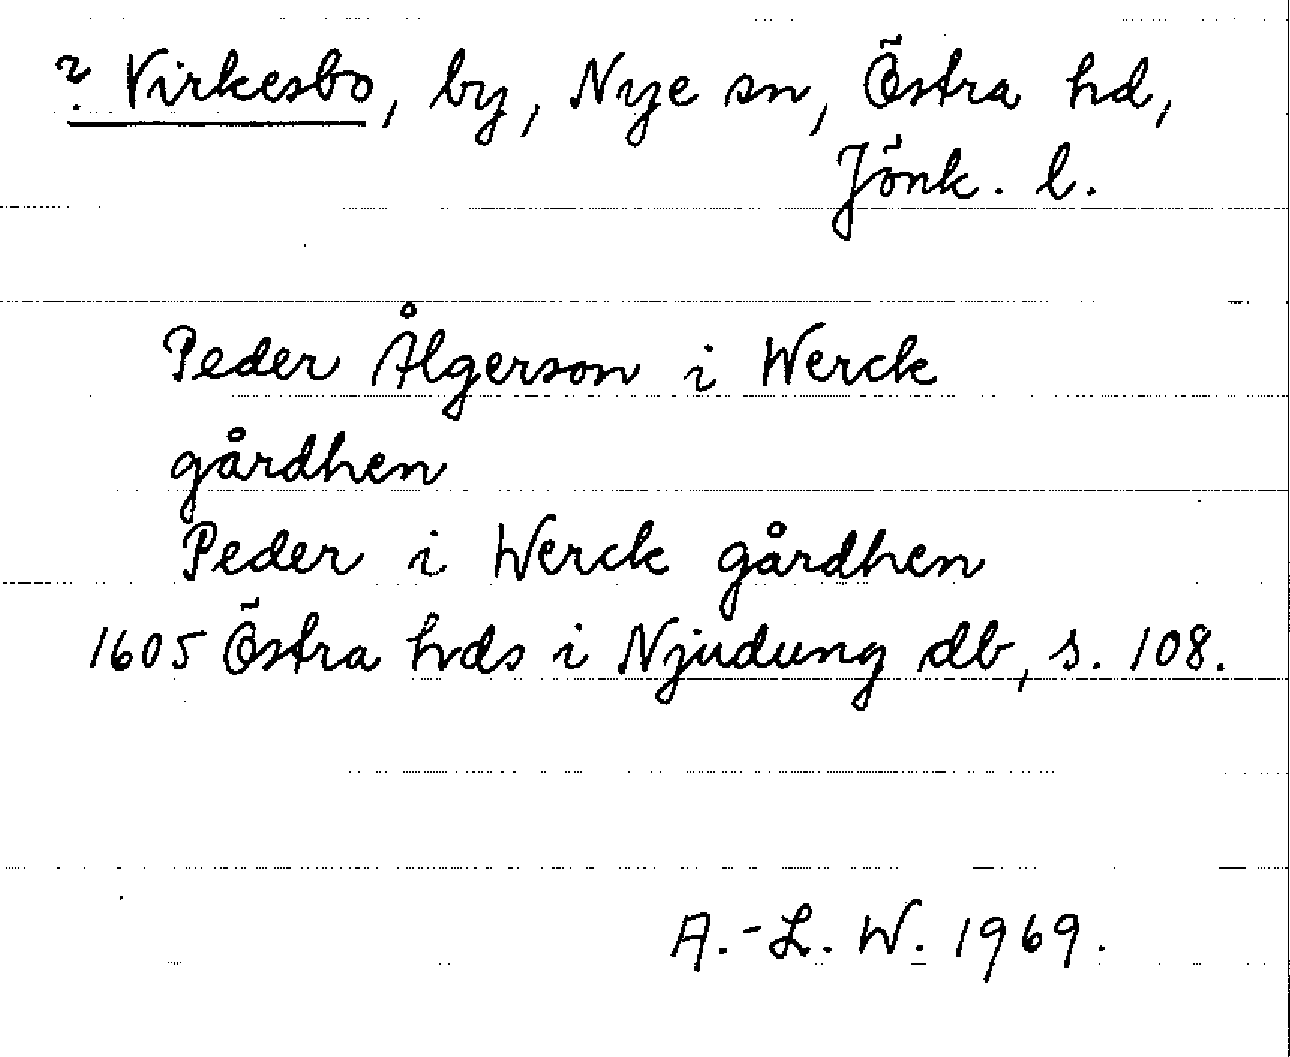 ? Virkesbo, by, Nye sn, Östra hd,
Jönk. l.
Peder Ålgerson i Werck
gårdhen
Peder i Werck gårdhen
1605 Östra hds i Njudung db, s. 108.
A.-L. W. 1969.